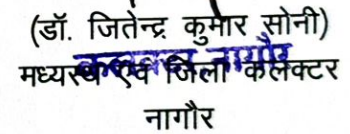 (डॉ. जितेन्द्र कुमार सोनी)
कलक्टर नागौर
मध्यस्थ एवं जिला कलेक्टर
नागौर